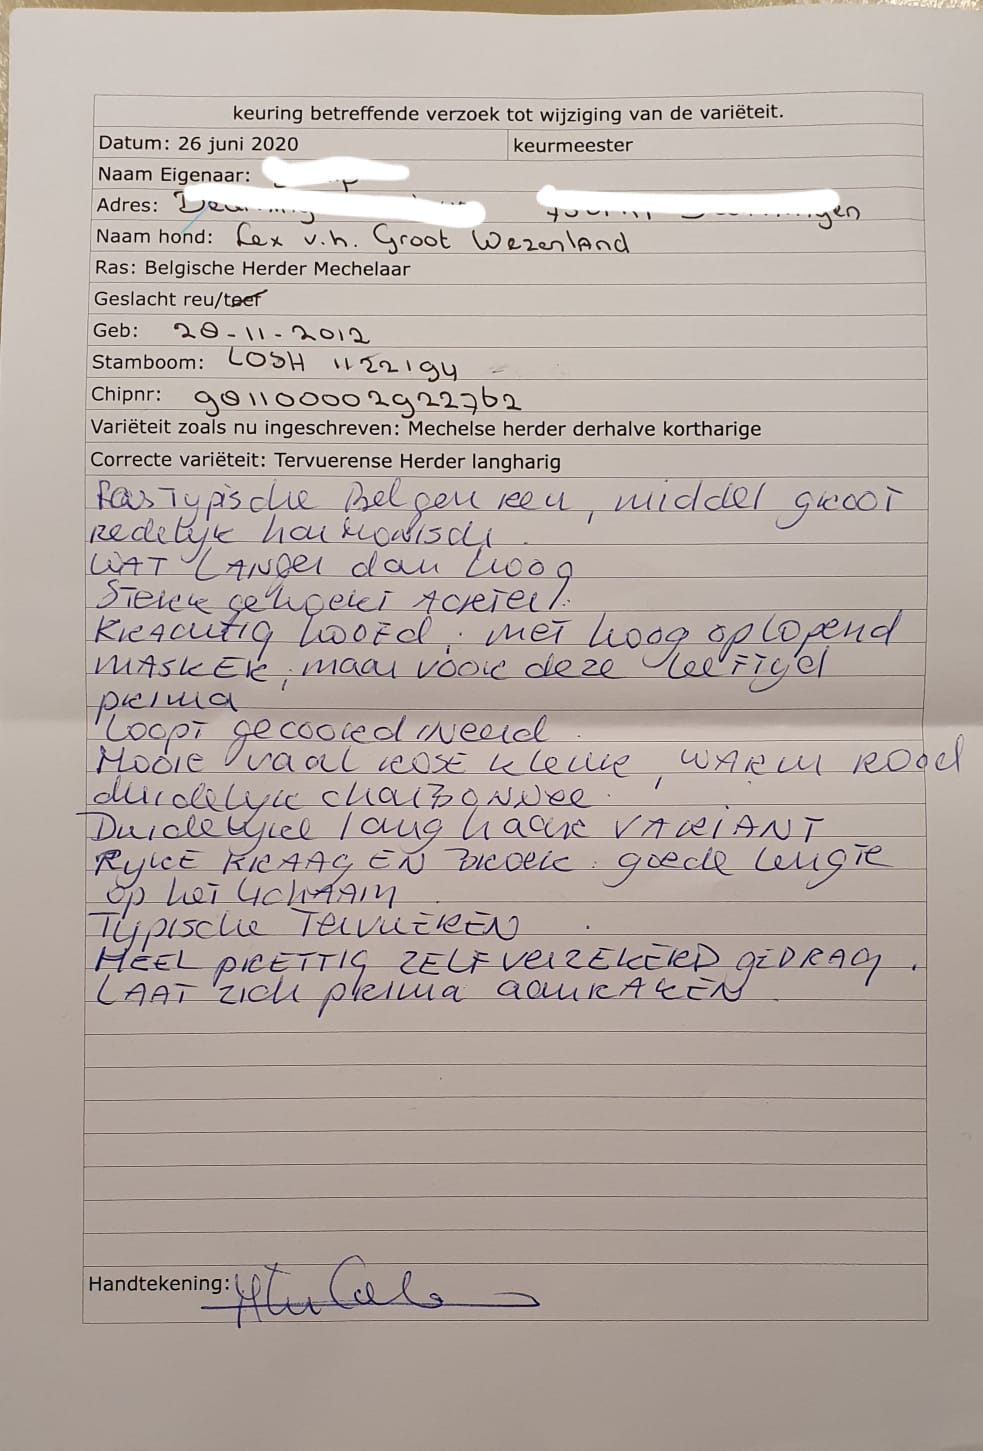 keuring betreffende verzoek tot wijziging van de variëteit.
Datum: 26 juni 2020 keurmeester
Naam Eigenaar:
Adres:
Naam hond: Lex v.h. Groot Wezenland
Ras: Belgische Herder Mechelaar
Geslacht reu/teef
Geb: 28-11-2012
Stamboom: LOSH 1122194
Chipnr: 981100002922762
Variëteit zoals nu ingeschreven: Mechelse herder derhalve kortharige
Correcte variëteit: Tervuerense Herder langharig
RasTypische Belgen reu, middel groot
Redelijk harmonisch.
WAT LANGer dan hoog
Sterk gehoekt Achter.
KRACHTIG HOOFD. met hoog oplopend
MASKER, maar voor deze leeftijd
prima
Loopt gecoordineerd.
Mooie vaal rosE kleur, WARM Rood
duidelijk charBoNNee.
Duidelijke lang haar VARIANT
RijKE KRAAG EN Broek. goede lengte
op het lichAAm.
Typische TervuEREN.
HEEL PRETTIG ZELFverzEKERD GEDRAG.
LAAT zich prima aanrAKEN.
Handtekening: